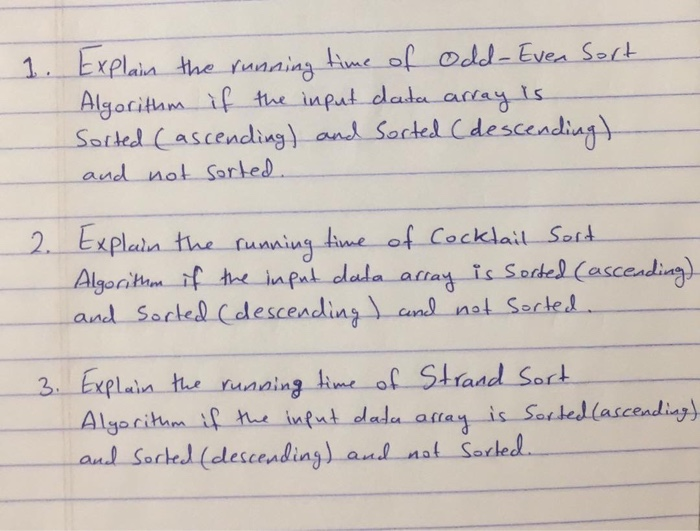 1. Explain the running time of Odd-Even Sort
Algorithm if the input data array is
Sorted (ascending) and Sorted (descending)
and not sorted.
2. Explain the running time of Cocktail Sort
Algorithm if the input data array is Sorted (ascending)
and Sorted (descending) and not Sorted.
3. Explain the running time of Strand Sort
Algorithm if the input data array is Sorted (ascending)
and Sorted (descending) and not Sorted.